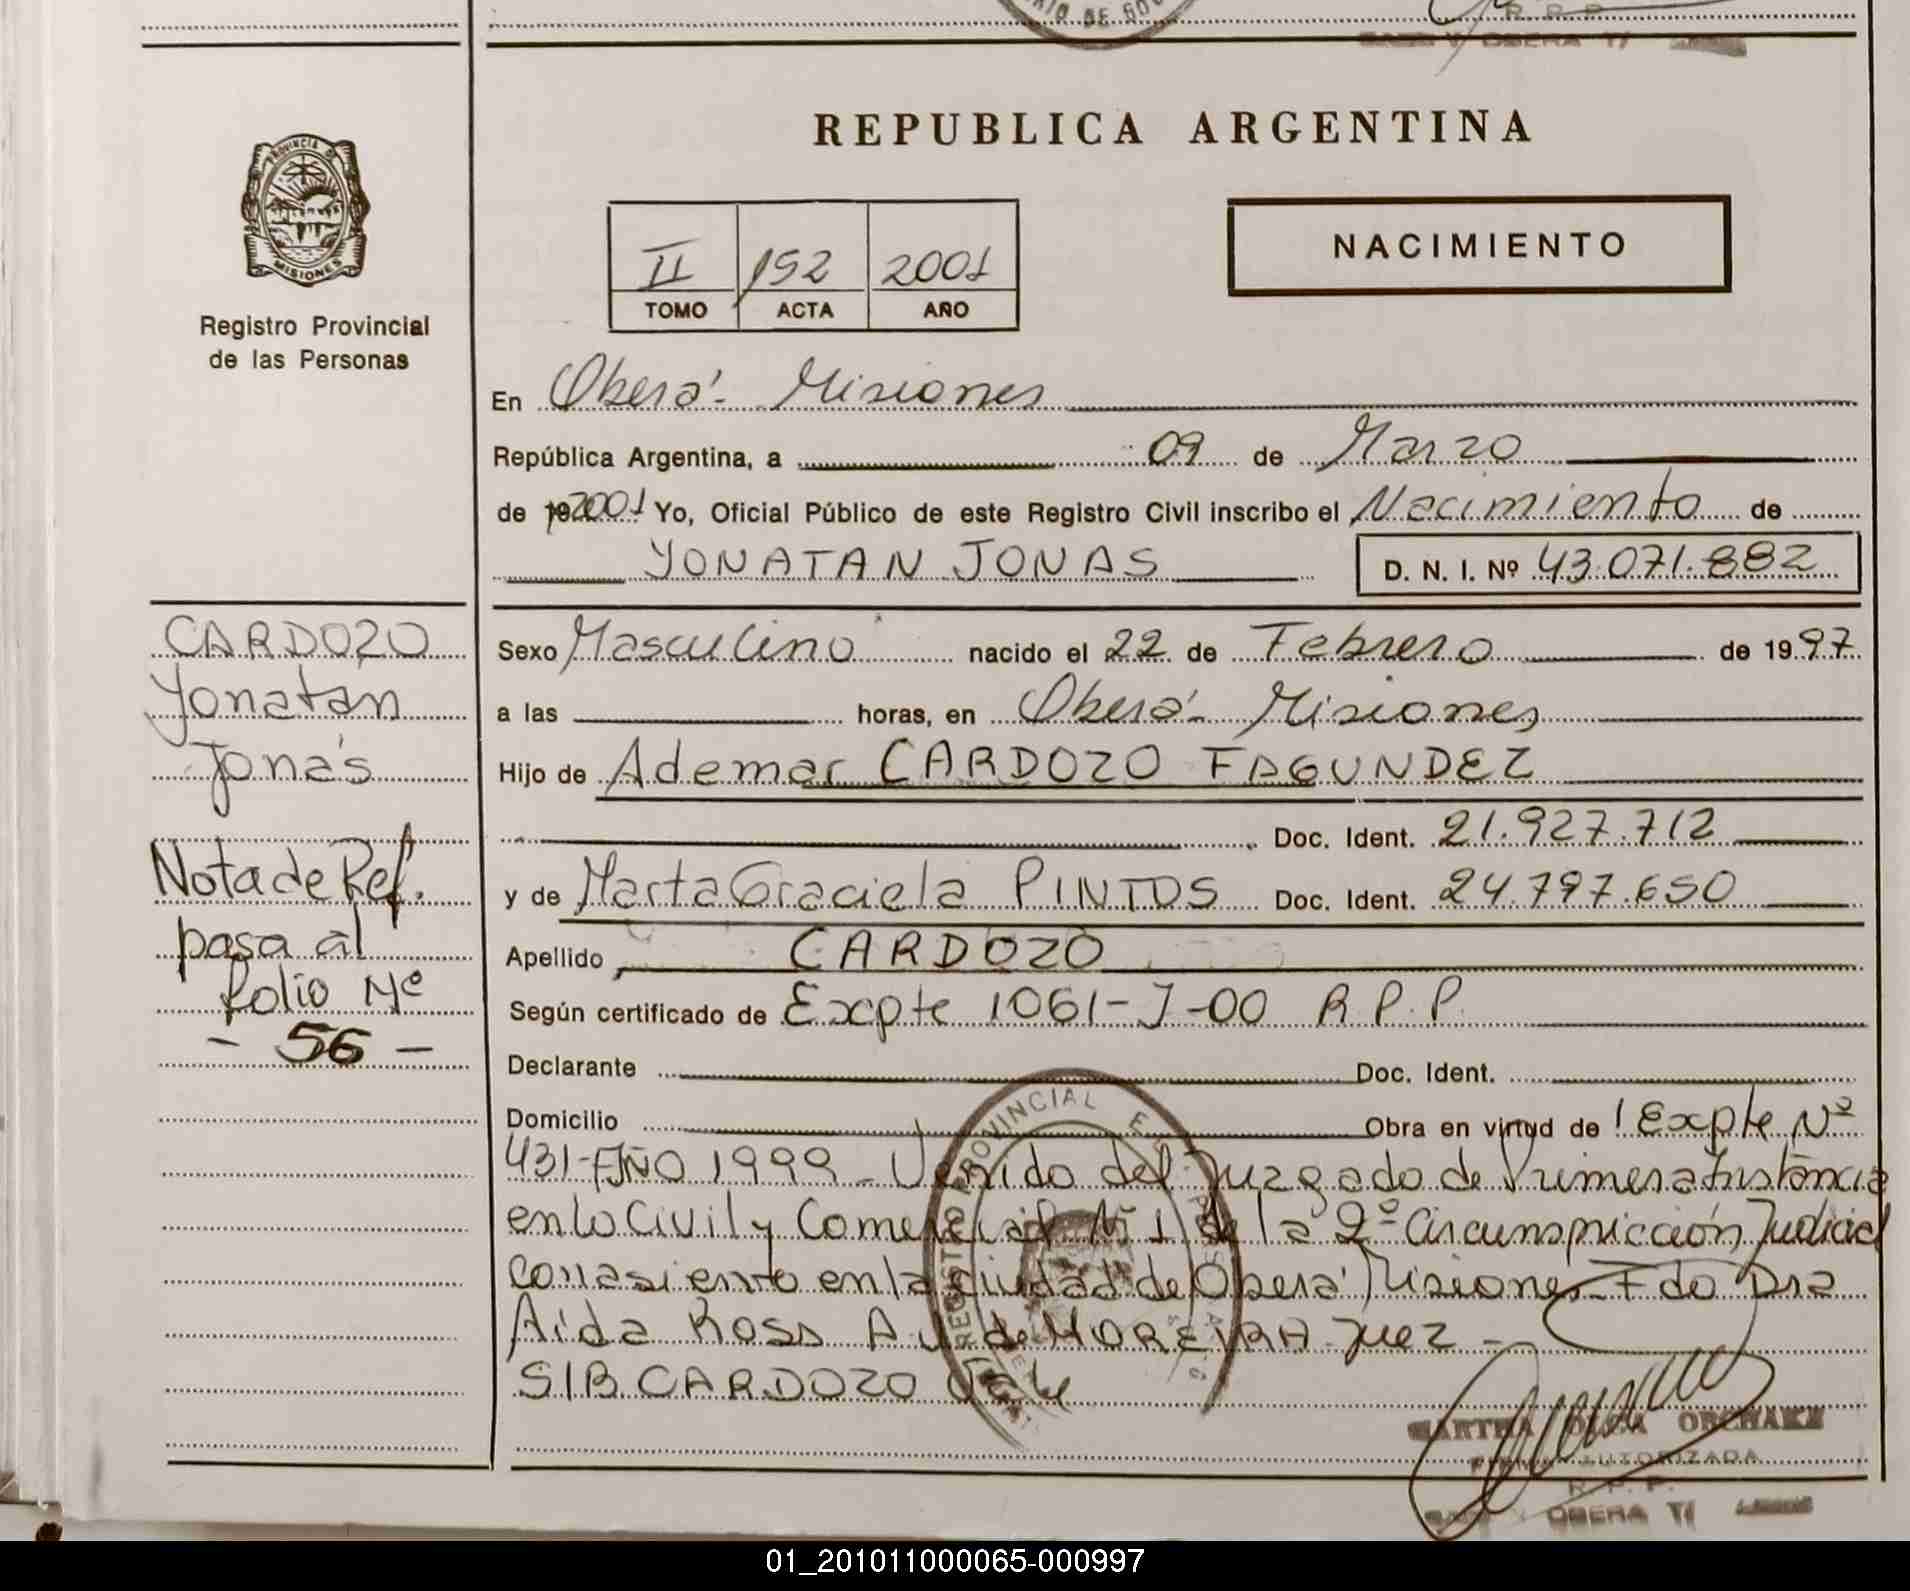 REPUBLICA ARGENTINA
PROVINCIA DE
MISIONES
Registro Provincial
de las Personas
II 152 2001
TOMO ACTA AÑO
NACIMIENTO
En Oberá - Misiones
República Argentina, a 09 de Marzo
de 2001 Yo, Oficial Público de este Registro Civil inscribo el Nacimiento de
YONATAN JONAS D. N. I. Nº 43.071.882
CARDOZO
Yonatan
Jonás
Nota de Ref.
pasa al
folio Nº
- 56 -
Sexo Masculino nacido el 22 de Febrero de 1997
a las horas, en Oberá - Misiones
Hijo de Ademar CARDOZO FAGUNDEZ
Doc. Ident. 21.927.712
y de Marta Graciela PINTOS Doc. Ident. 24.797.650
Apellido CARDOZO
Según certificado de Expte 1061-J-00 R.P.P.
Declarante Doc. Ident.
Domicilio Obra en virtud de Expte Nº
431-AÑO 1999 - Venido del Juzgado de Primera Instancia
en lo Civil y Comercial Nº 1 de la 2º Circunspricción Judicial
con asiento en la ciudad de Oberá Misiones - Fdo Dra
Aida Rosa A. de MOREIRA Juez -
S/B CARDOZO Vale
REGISTRO PROVINCIAL
MARTHA OLGA
FIRMA AUTORIZADA
R. P. P.
OBERA
01_201011000065-000997